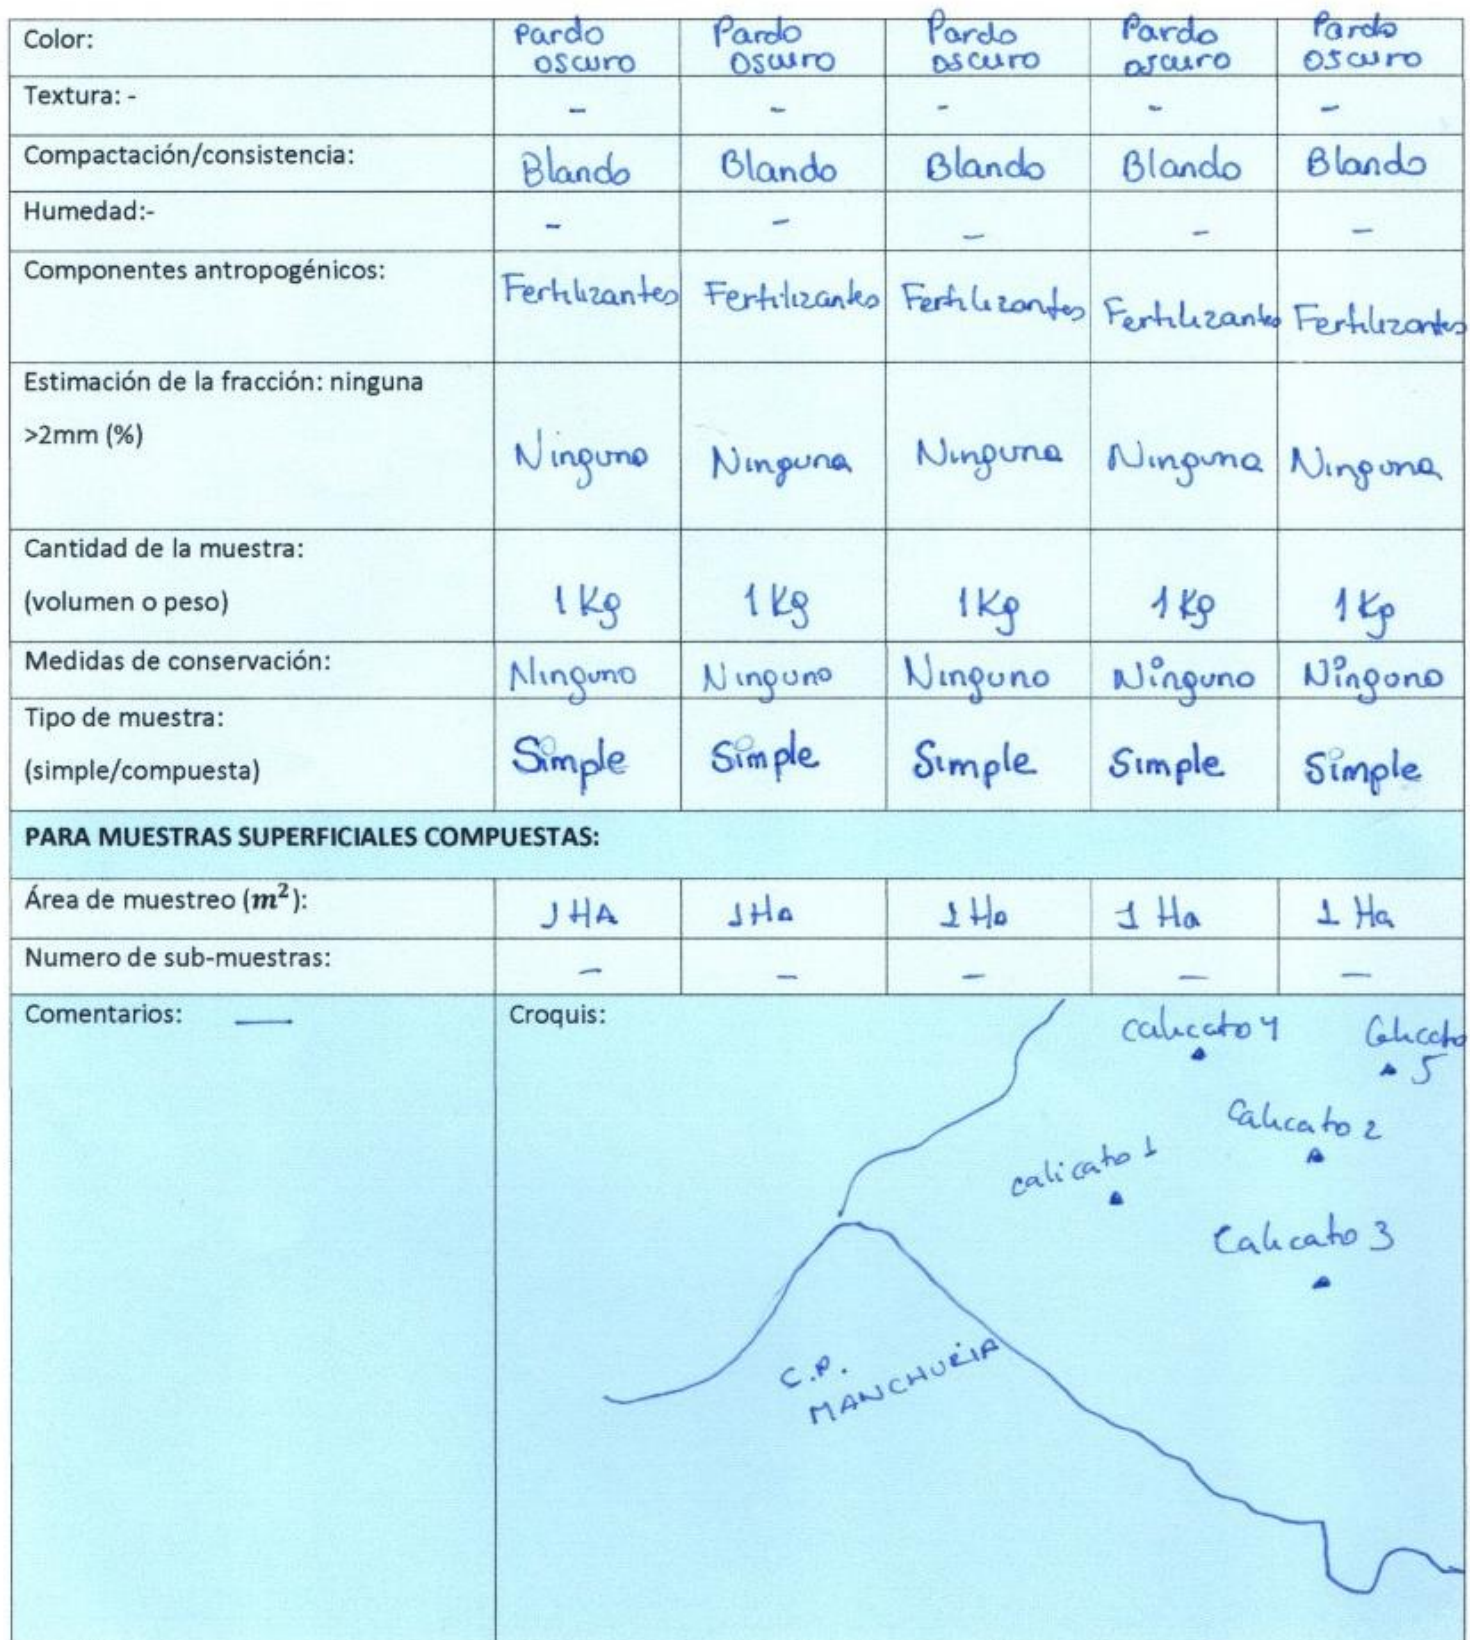 Color: Pardo oscuro Pardo oscuro Pardo oscuro Pardo oscuro Pardo oscuro
Textura: - - - - - -
Compactación/consistencia: Blando Blando Blando Blando Blando
Humedad:- - - - - -
Componentes antropogénicos: Fertilizantes Fertilizantes Fertilizantes Fertilizantes Fertilizantes
Estimación de la fracción: ninguna
>2mm (%) Ninguna Ninguna Ninguna Ninguna Ninguna
Cantidad de la muestra:
(volumen o peso) 1 Kg 1 Kg 1 Kg 1 Kg 1 Kg
Medidas de conservación: Ninguno Ninguno Ninguno Ninguno Ninguno
Tipo de muestra:
(simple/compuesta) Simple Simple Simple Simple Simple
PARA MUESTRAS SUPERFICIALES COMPUESTAS:
Área de muestreo (m²): 1 HA 1 Ha 1 Ha 1 Ha 1 Ha
Numero de sub-muestras: - - - - -
Comentarios: —
Croquis:
calicata 4
Calicata 5
Calicata 2
calicata 1
Calicata 3
C.P. MANCHURIA